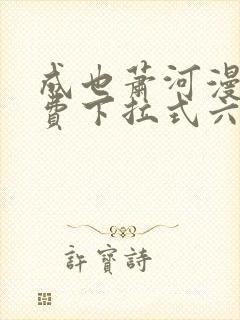 成也萧河漫
费下拉式六
許寶詩